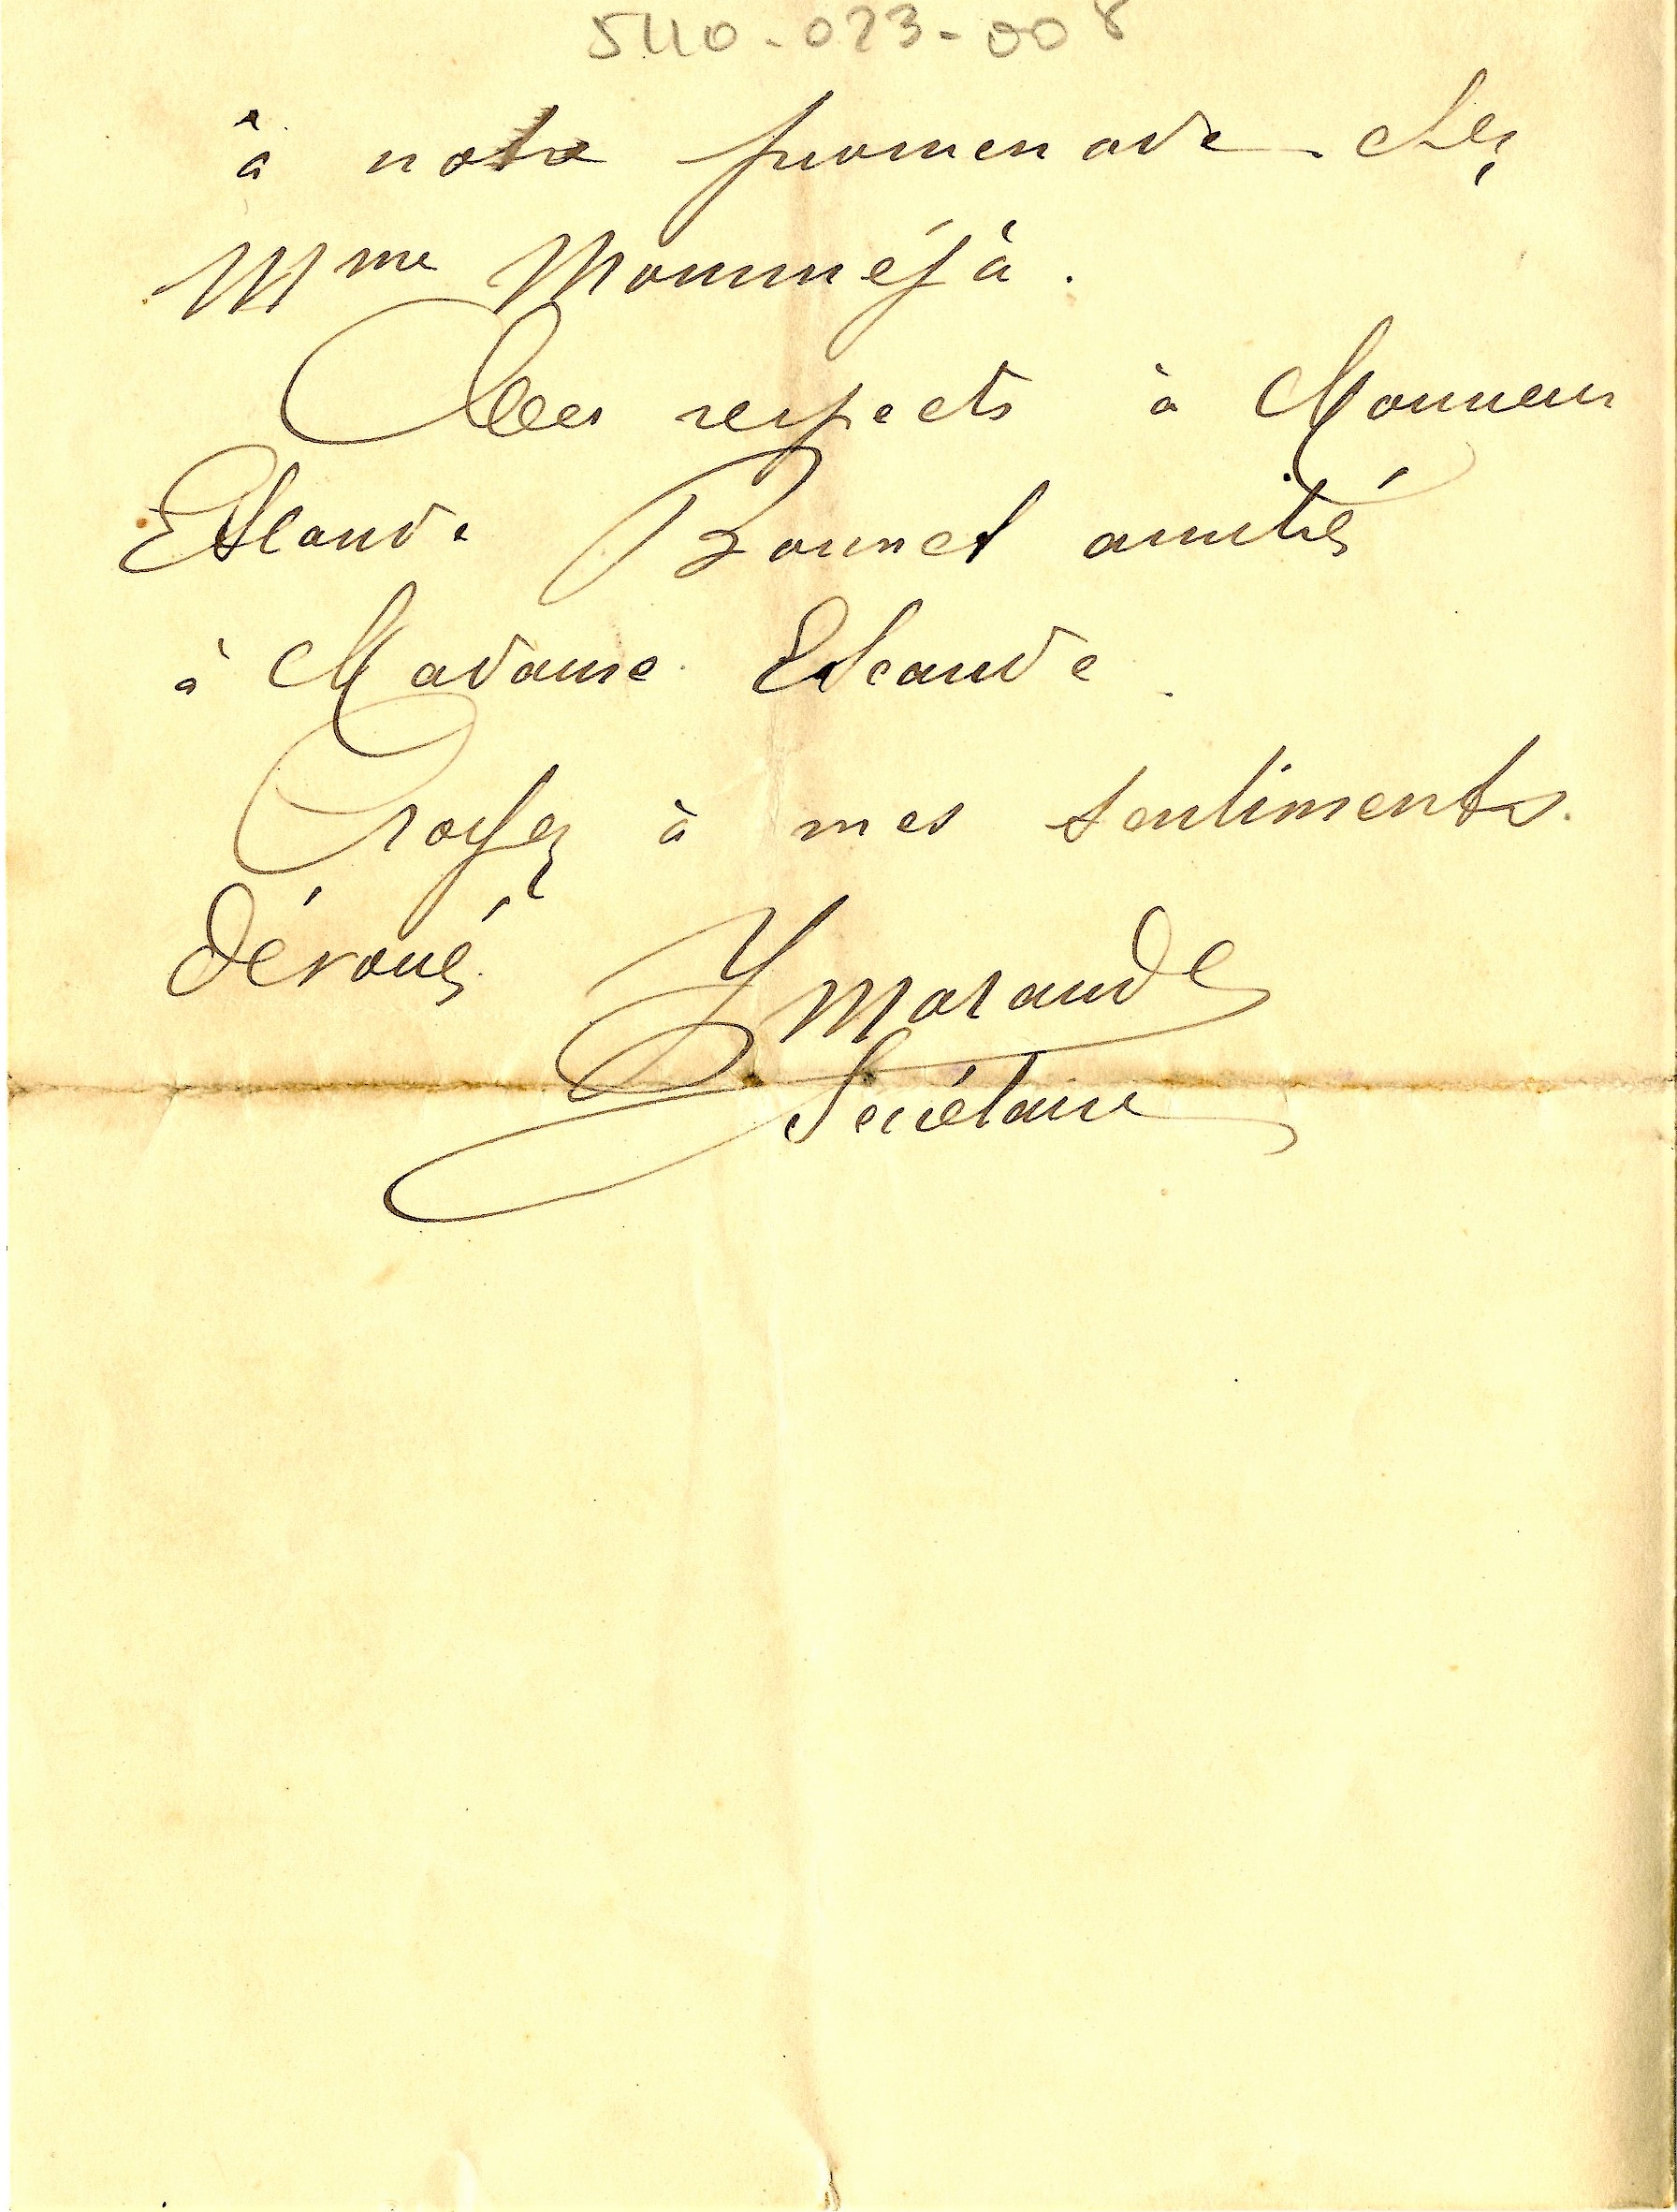 5110-023-008
à notre promenade chez
Mme Momméjà.
Mes respects à Monsieur
Escande Bonnet amitiés
à Madame Escande
Croyez à mes sentiments.
dévoués
Y Marande
Secrétaire